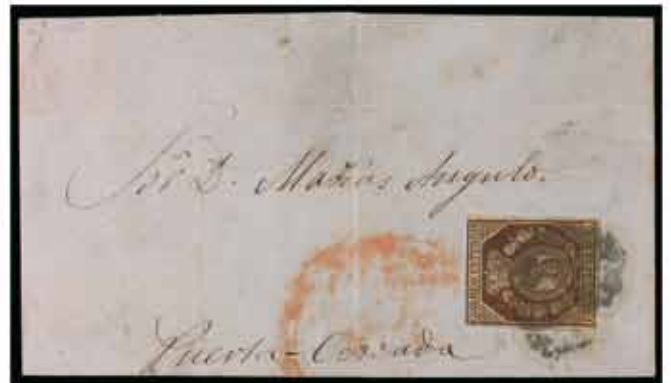 Sor D. Matias Angulo.
Puerta-Cerrada